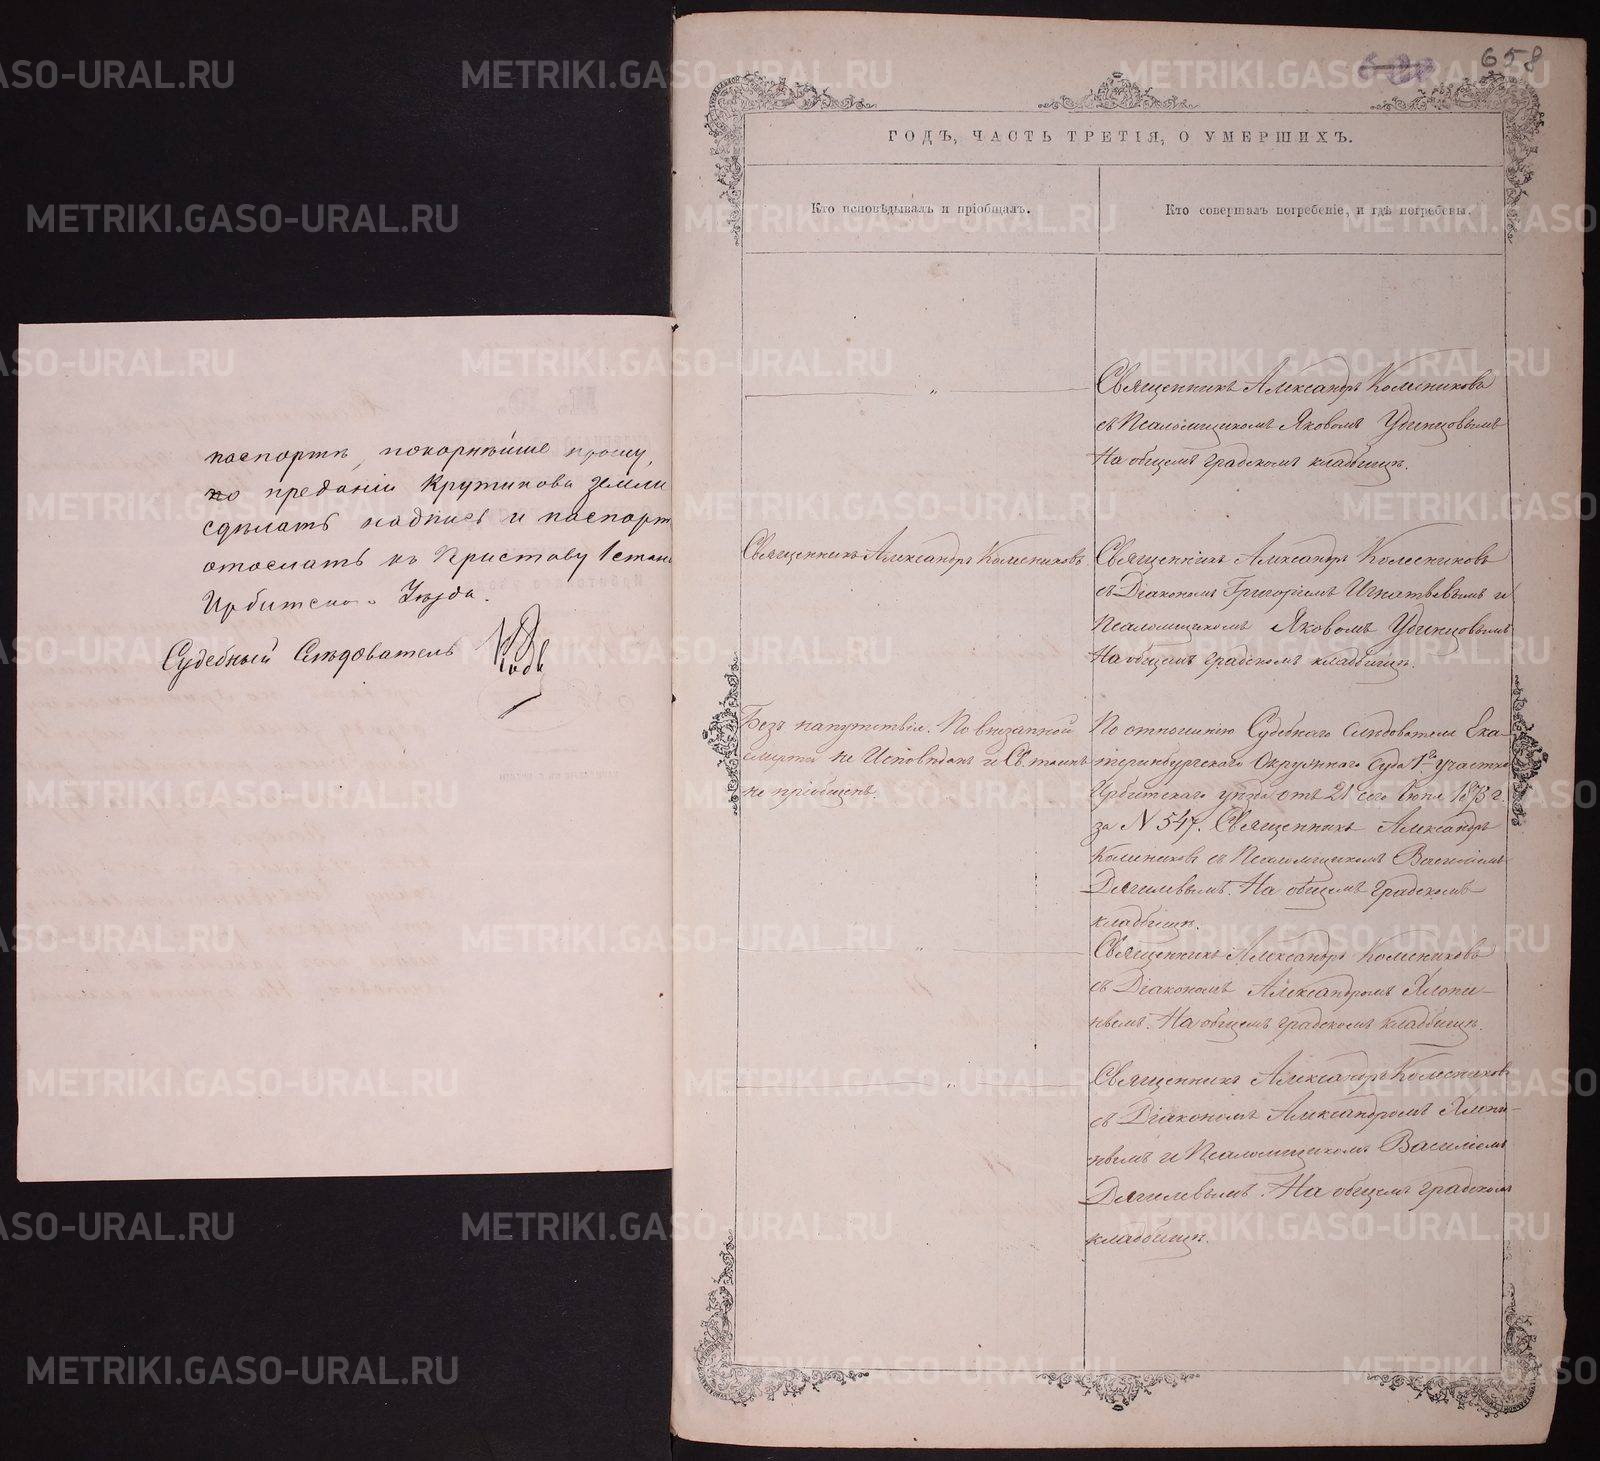 паспортъ, покорнѣйше прошу,
по преданіи Крутикова земли
сдѣлать надпись и паспорт
отослать къ Приставу 1 стан
Ирбитско Уѣзда.
Судебный Слѣдователь
658
ГОДЪ, ЧАСТЬ ТРЕТІЯ, О УМЕРШИХЪ.
Кто исповѣдывалъ и пріобщалъ.
Кто совершалъ погребеніе, и гдѣ погребены.
Священникъ Александръ Колесниковъ
съ Псаломщикомъ Яковомъ Удинцовымъ
На общемъ градскомъ кладбищѣ.
Священникъ Александръ Колесниковъ
Священникъ Александръ Колесниковъ
съ Діакономъ Григоріемъ Игнатьевымъ и
Псаломщикомъ Яковомъ Удинцовымъ
На общемъ градскомъ кладбищѣ.
Безъ напутствія. По внезапной
смерти не Исповѣданъ и Св. таинъ
не пріобщенъ.
По отношенію Судебнаго Слѣдователя Ека-
теринбургскаго Окружнаго Суда 1го участка
Ирбитскаго уѣзда отъ 21 сего
за N 547. Священникъ Александръ
Колесниковъ съ Псаломщикомъ Василіемъ
Дягилевымъ. На общемъ градскомъ
кладбищѣ.
Священникъ Александръ Колесниковъ
съ Діакономъ Александромъ Хлопи-
нымъ. На общемъ градскомъ кладбищѣ.
Священникъ Александръ Колесниковъ
съ Діакономъ Александромъ Хлопи-
нымъ и Псаломщикомъ Василіемъ
Дягилевымъ. На общемъ градскомъ
кладбищѣ.
METRIKI.GASO-URAL.RU